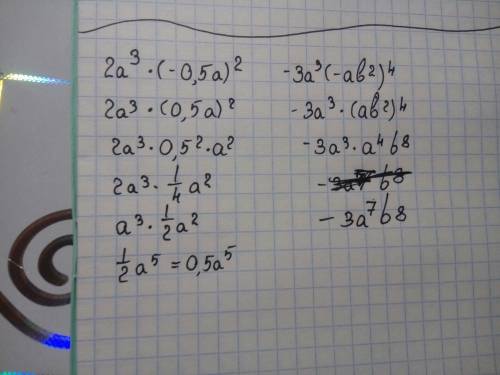 2a³ · (-0,5a)²
2a³ · (0,5a)²
2a³ · 0,5² · a²
2a³ · 1/4 a²
a³ · 1/2 a²
1/2 a⁵ = 0,5a⁵
-3a³(-ab²)⁴
-3a³ · (ab²)⁴
-3a³ · a⁴b8
-3a⁷b8